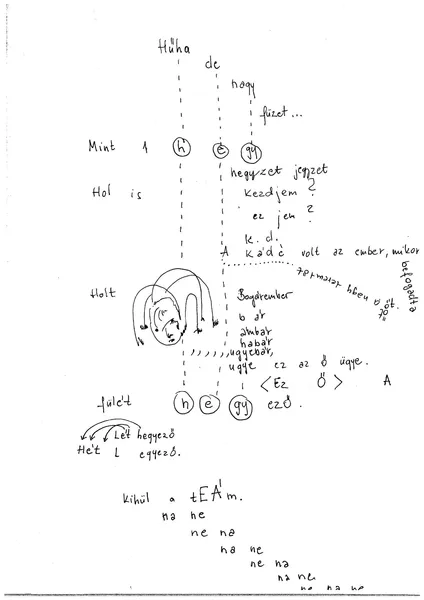 Hűha
de
nagy
füzet...
Mint 1 h e gy
hegyzet jegyzet
Hol is kezdjem ?
ez jem ?
k. d.
A kádé volt az ember, mikor
befogadta
őt. a nagy természet
Holt
Bogárember
b ár
ambár
habár
ugyebár,
ugye ez az ő ügye.
< Ez Ő > A
fülét h e gy ező.
Lét hegyező
Hét L egyező.
Kihúl a tEÁm.
na ne
ne na
na ne
ne na
na ne
ne na ne